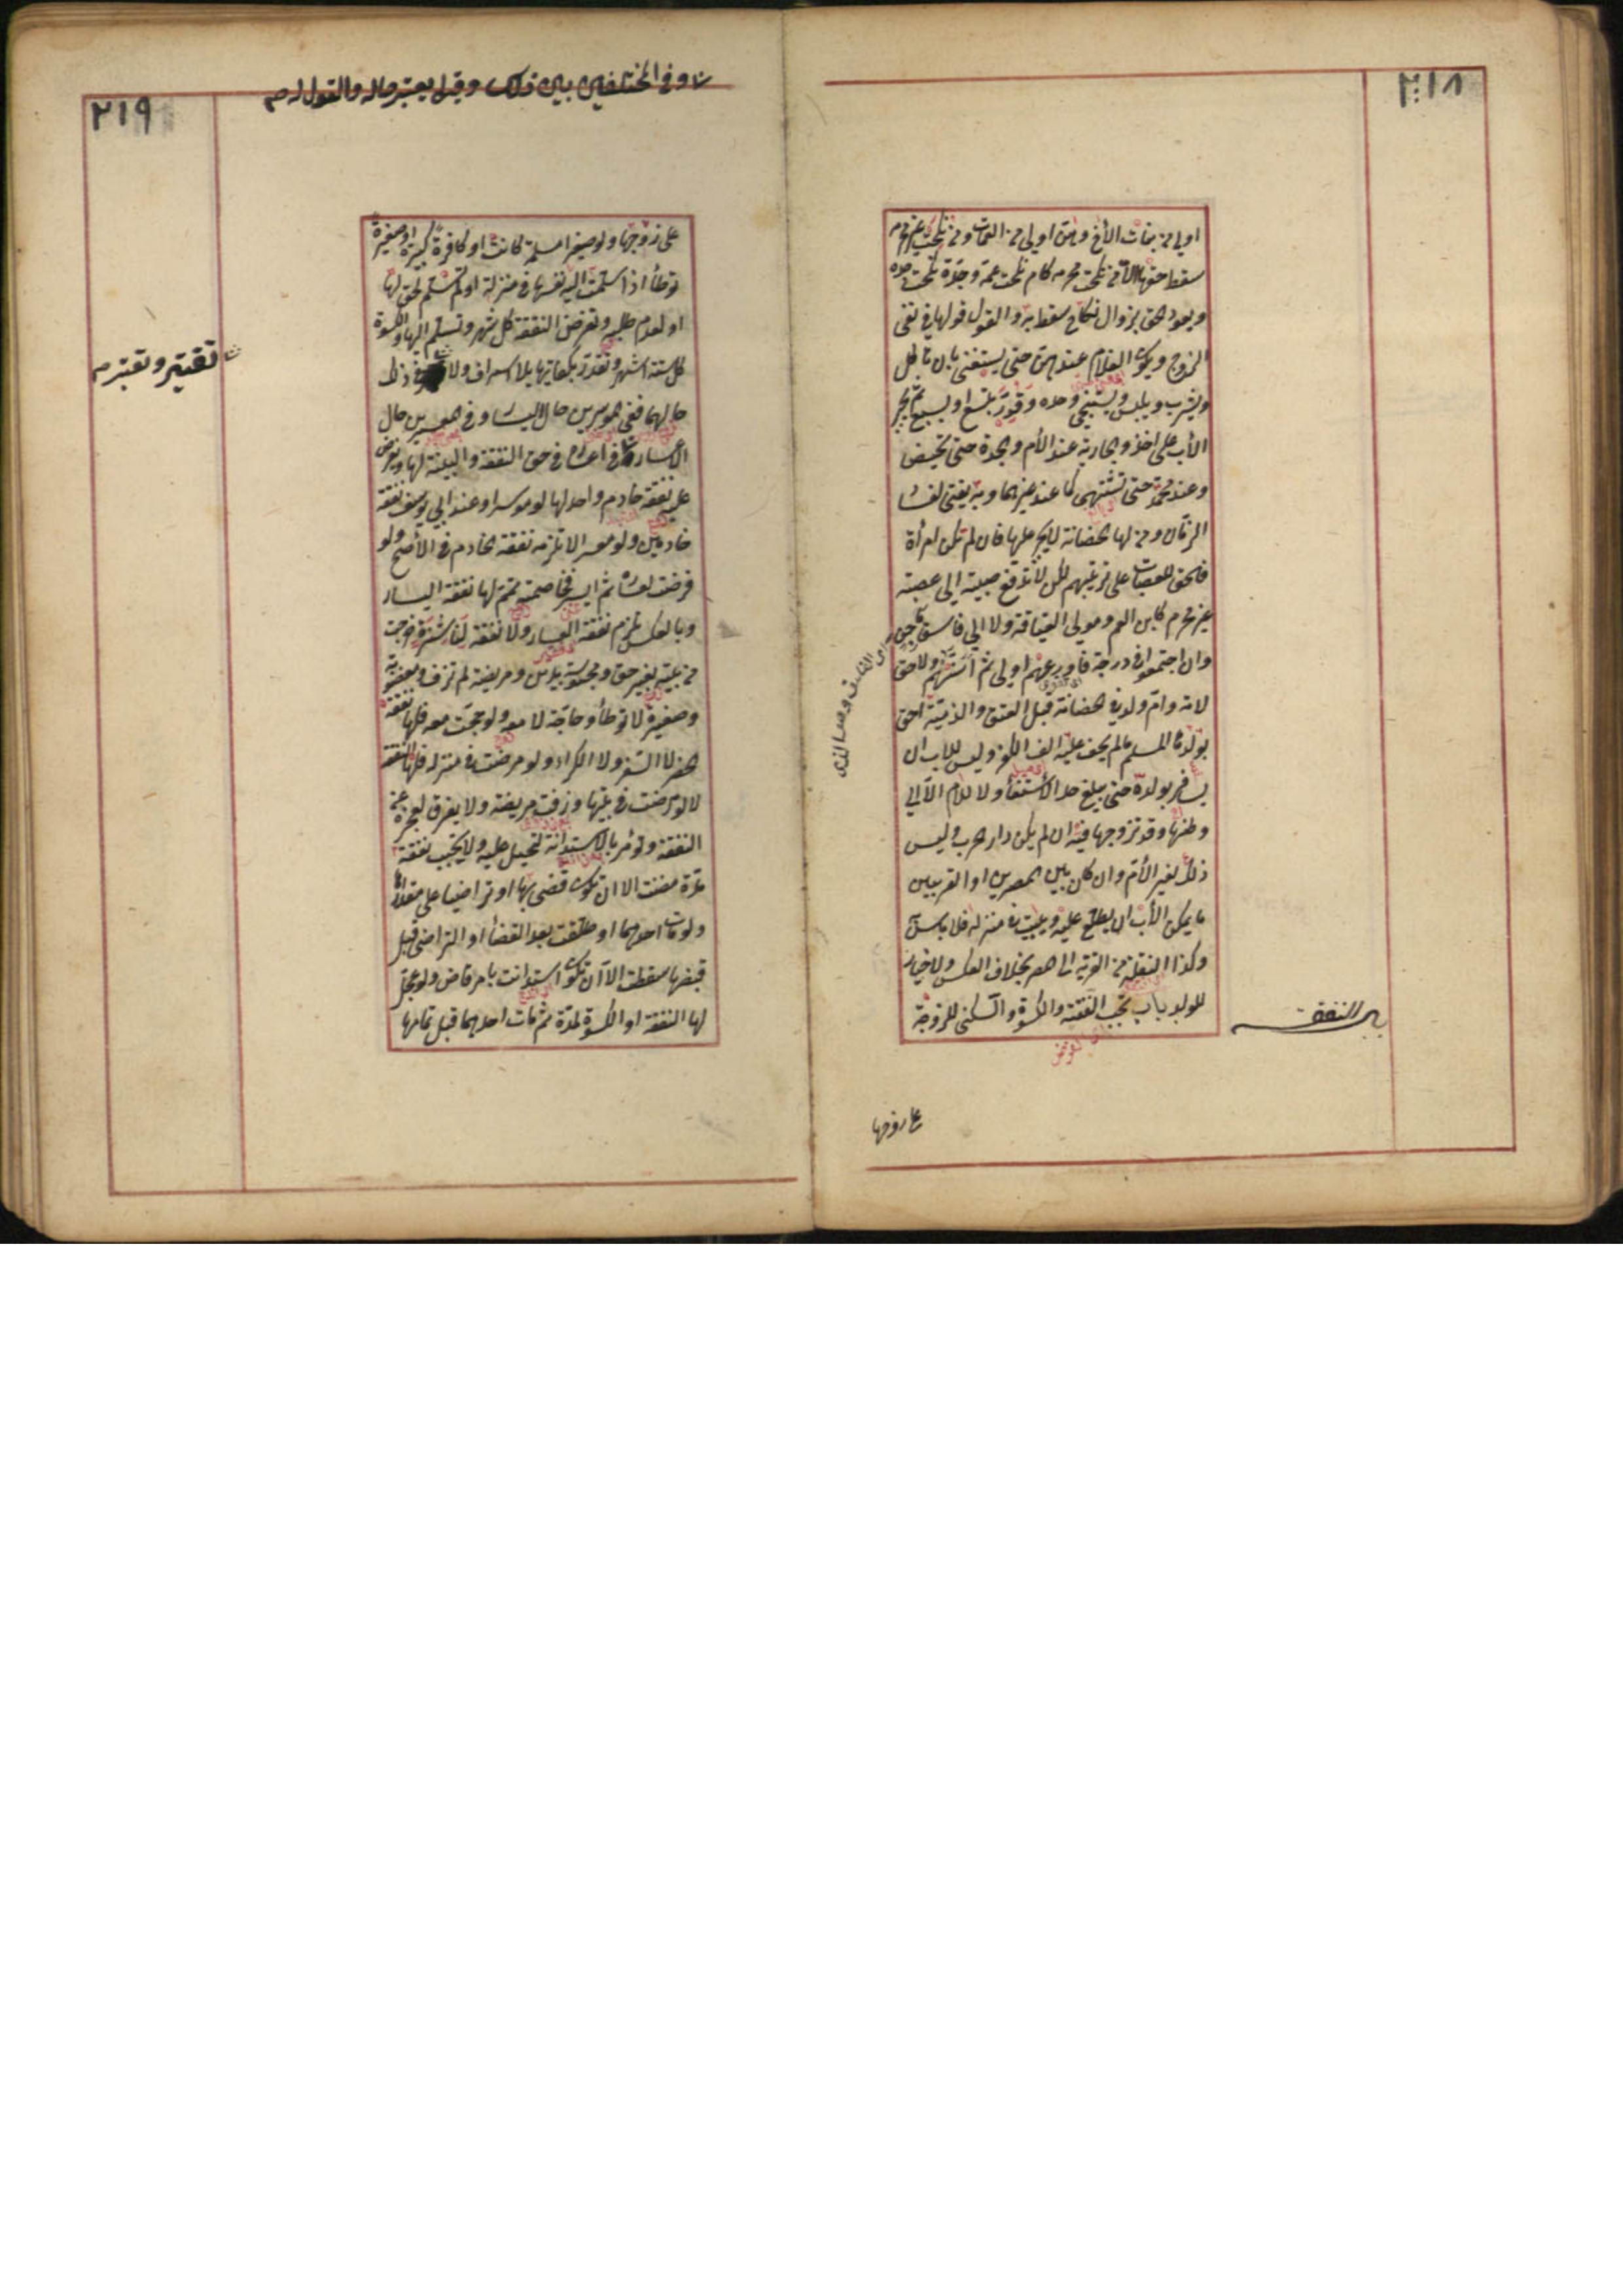 ٢١٨
اولى من بنات الأخ وهن اولى من العمات ومن نكحت غير محرم
سقط حقها لا من نكحت محرمه كام نكحت عمه وجدة نكحت جده
ويعود الحق بزوال نكاح سقط به والقول قولها في نفى
الزوج ويكون الغلام عندهن حتى يستغنى بان ياكل
ويشرب ويلبس ويستنجي وحده وقدر بتسع او بسبع ثم يجبر
الأب على اخذه والجارية عند الأم والجدة حتى تحيض
وعند محمد حتى تشتهى كما عند غيرهما وبه يفتى لفساد
الزمان ومن لها الحضانة لا يجبر عليها فان لم تكن امرأة
فالحق للعصبات على ترتيبهم لكن لا تدفع صبية الى عصبة
غير محرم كابن العم ومولى العتاقة ولا الى فاسق ماجن
وان اجتمعوا في درجة فاورعهم اولى ثم اسنهم ولا حق
لامة وام ولد في الحضانة قبل العتق والذمية احق
بولدها المسلم ما لم يخف عليه الف الكفر وليس للاب ان
يسافر بولده حتى يبلغ حد الأستغناء ولا للام الا الى
وطنها وقد تزوجها فيه ان لم يكن دار حرب وليس
ذلك لغير الأم وان كان بين المصرين او القريتين
ما يمكن الأب ان يطلع عليه ويبيت في منزله فلا بأس
وكذا النقلة من القرية الى المصر بخلاف العكس ولا خيار
للولد باب تجب النفقة والكسوة والسكنى للزوجة
باب النفقة
على زوجها
٢١٩
وفي المختلفين بين ذلك وقيل يعتبر حاله والقول له صح
على زوجها ولو صغيرا مسلمة كانت او كافرة كبيرة او صغيرة
توطأ اذا سلمت اليه نفسها في منزله او لم تسلم لحق لها
او لعدم طلبه وتفرض النفقة كل شهر وتسلم اليها والكسوة
كل ستة اشهر وتقدر بكفايتها بلا اسراف ولا في ذلك
تقتير وتعتبر صح
حالهما ففي الموسرين حال اليسار وفي المعسرين حال
الأعسار في اعساره في حق النفقة والبينة لها ويفرض
عليه نفقة خادم واحد لها لو موسرا وعند ابي يوسف نفقة
خادمين ولو معسرا لا تلزمه نفقة الخادم في الأصح ولو
فرضت لعساره ثم ايسر فخاصمته تمم لها نفقة اليسار
وبالعكس تلزم نفقة العسار ولا نفقة لناشزة خرجت
من بيته بغير حق ومحبوسة بدين ومريضة لم تزف ومغصوبة
وصغيرة لا توطأ وحاجة لا معه ولو حجت معه فلها نفقة
الحضر لا السفر ولا الكراء ولو مرضت في منزله فلها النفقة
لا لو مرضت في بيتها وزفت مريضة ولا يفرق لعجزه عن
النفقة وتؤمر بالاستدانة لتحيل عليه ولا تجب نفقة
مدة مضت الا ان تكون قضى بها او تراضيا على مقدارها
ولو مات احدهما او طلقت بعد القضاء او التراضى قبل
قبضها سقطت الا ان تكون استدانت بامر قاض ولو عجل
لها النفقة او الكسوة لمدة ثم مات احدهما قبل تمامها